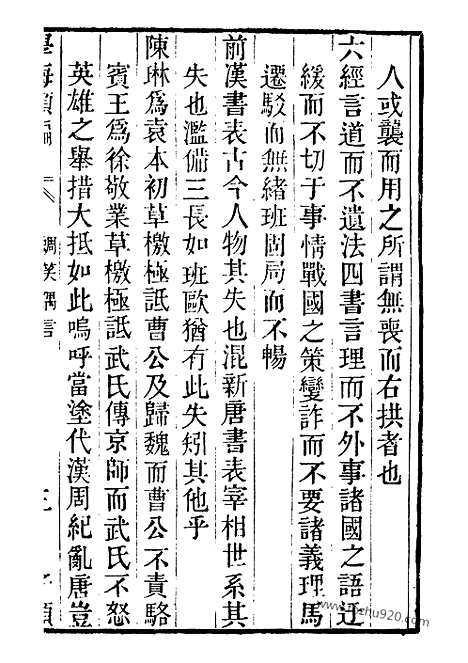 人或襲而用之所謂無喪而右拱者也
六經言道而不遺法四書言理而不外事諸國之語迂
緩而不切于事情戰國之策變詐而不要諸義理馬
遷駁而無緒班固局而不暢
前漢書表古今人物其失也混新唐書表宰相世系其
失也濫備三長如班歐猶有此失矧其他乎
陳琳為袁本初草檄極詆曹公及歸魏而曹公不責駱
賓王為徐敬業草檄極詆武氏傳京師而武氏不怒
英雄之舉措大抵如此嗚呼當塗代漢周紀亂唐豈
學海類編
調燮偶言